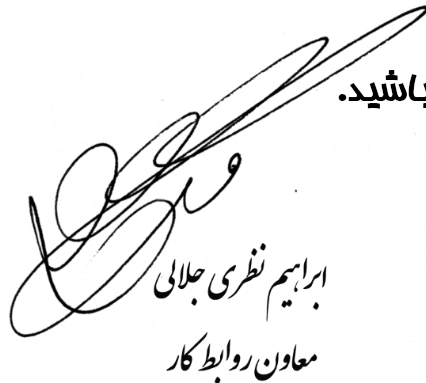 باشید.
ابراهیم نظری جلالی
معاون روابط کار